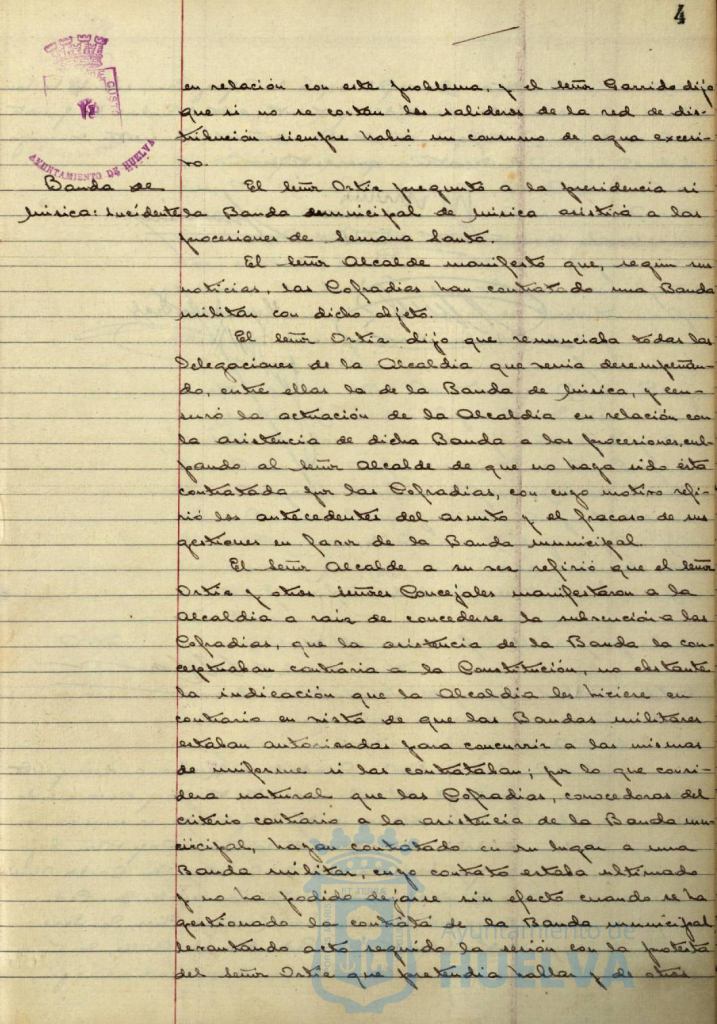 4
AYUNTAMIENTO DE HUELVA
en relación con este problema, y el señor Garrido dijo
que si no se cortan los salideros de la red de dis-
tribución siempre habrá un consumo de agua excesi-
vo.
Banda de
Música: incidente
El señor Ortiz preguntó a la presidencia si
la Banda municipal de Música asistirá a las
procesiones de Semana Santa.
El señor Alcalde manifestó que, según sus
noticias, las Cofradías han contratado una Banda
militar con dicho objeto.
El señor Ortiz dijo que renunciaba todas las
Delegaciones de la Alcaldía que venía desempeñan-
do, entre ellas la de la Banda de Música, y cen-
suró la actuación de la Alcaldía en relación con
la asistencia de dicha Banda a las procesiones, cul-
pando al señor Alcalde de que no haya sido ésta
contratada por las Cofradías, con cuyo motivo refi-
rió los antecedentes del asunto y el fracaso de sus
gestiones en favor de la Banda municipal.
El señor Alcalde a su vez refirió que el señor
Ortiz y otros señores Concejales manifestaron a la
Alcaldía a raiz de concederse la subvención a las
Cofradías, que la asistencia de la Banda la con-
ceptuaban contraria a la Constitución, no obstante
la indicación que la Alcaldía les hiciere en
contrario en vista de que las Bandas militares
estaban autorizadas para concurrir a las mismas
de uniforme si las contrataban; por lo que consi-
dera natural que las Cofradías, conocedoras del
criterio contrario a la asistencia de la Banda mu-
nicipal, hayan contratado en su lugar a una
Banda militar, cuyo contrato estaba ultimado
y no ha podido dejarse sin efecto cuando se ha
gestionado la contrata de la Banda municipal
levantando acto seguido la sesión con la protesta
del señor Ortiz que pretendía hablar y de otros
Ayuntamiento de
HUELVA